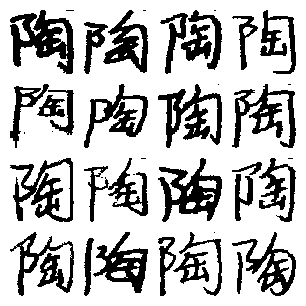 陶陶陶陶
陶陶陶陶
陶陶陶陶
陶陶陶陶